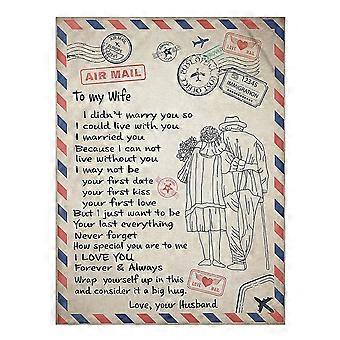 AIR MAIL
12345
IMMIGRATION
To my Wife
I didn't marry you so
I could live with you
I married you
Because I can not
live without you
I may not be
your first date
your first kiss
your first love
But I just want to be
Your last everything
Never forget
How special you are to me
I LOVE YOU
Forever & Always
Wrap yourself up in this
and consider it a big hug.
Love, your Husband